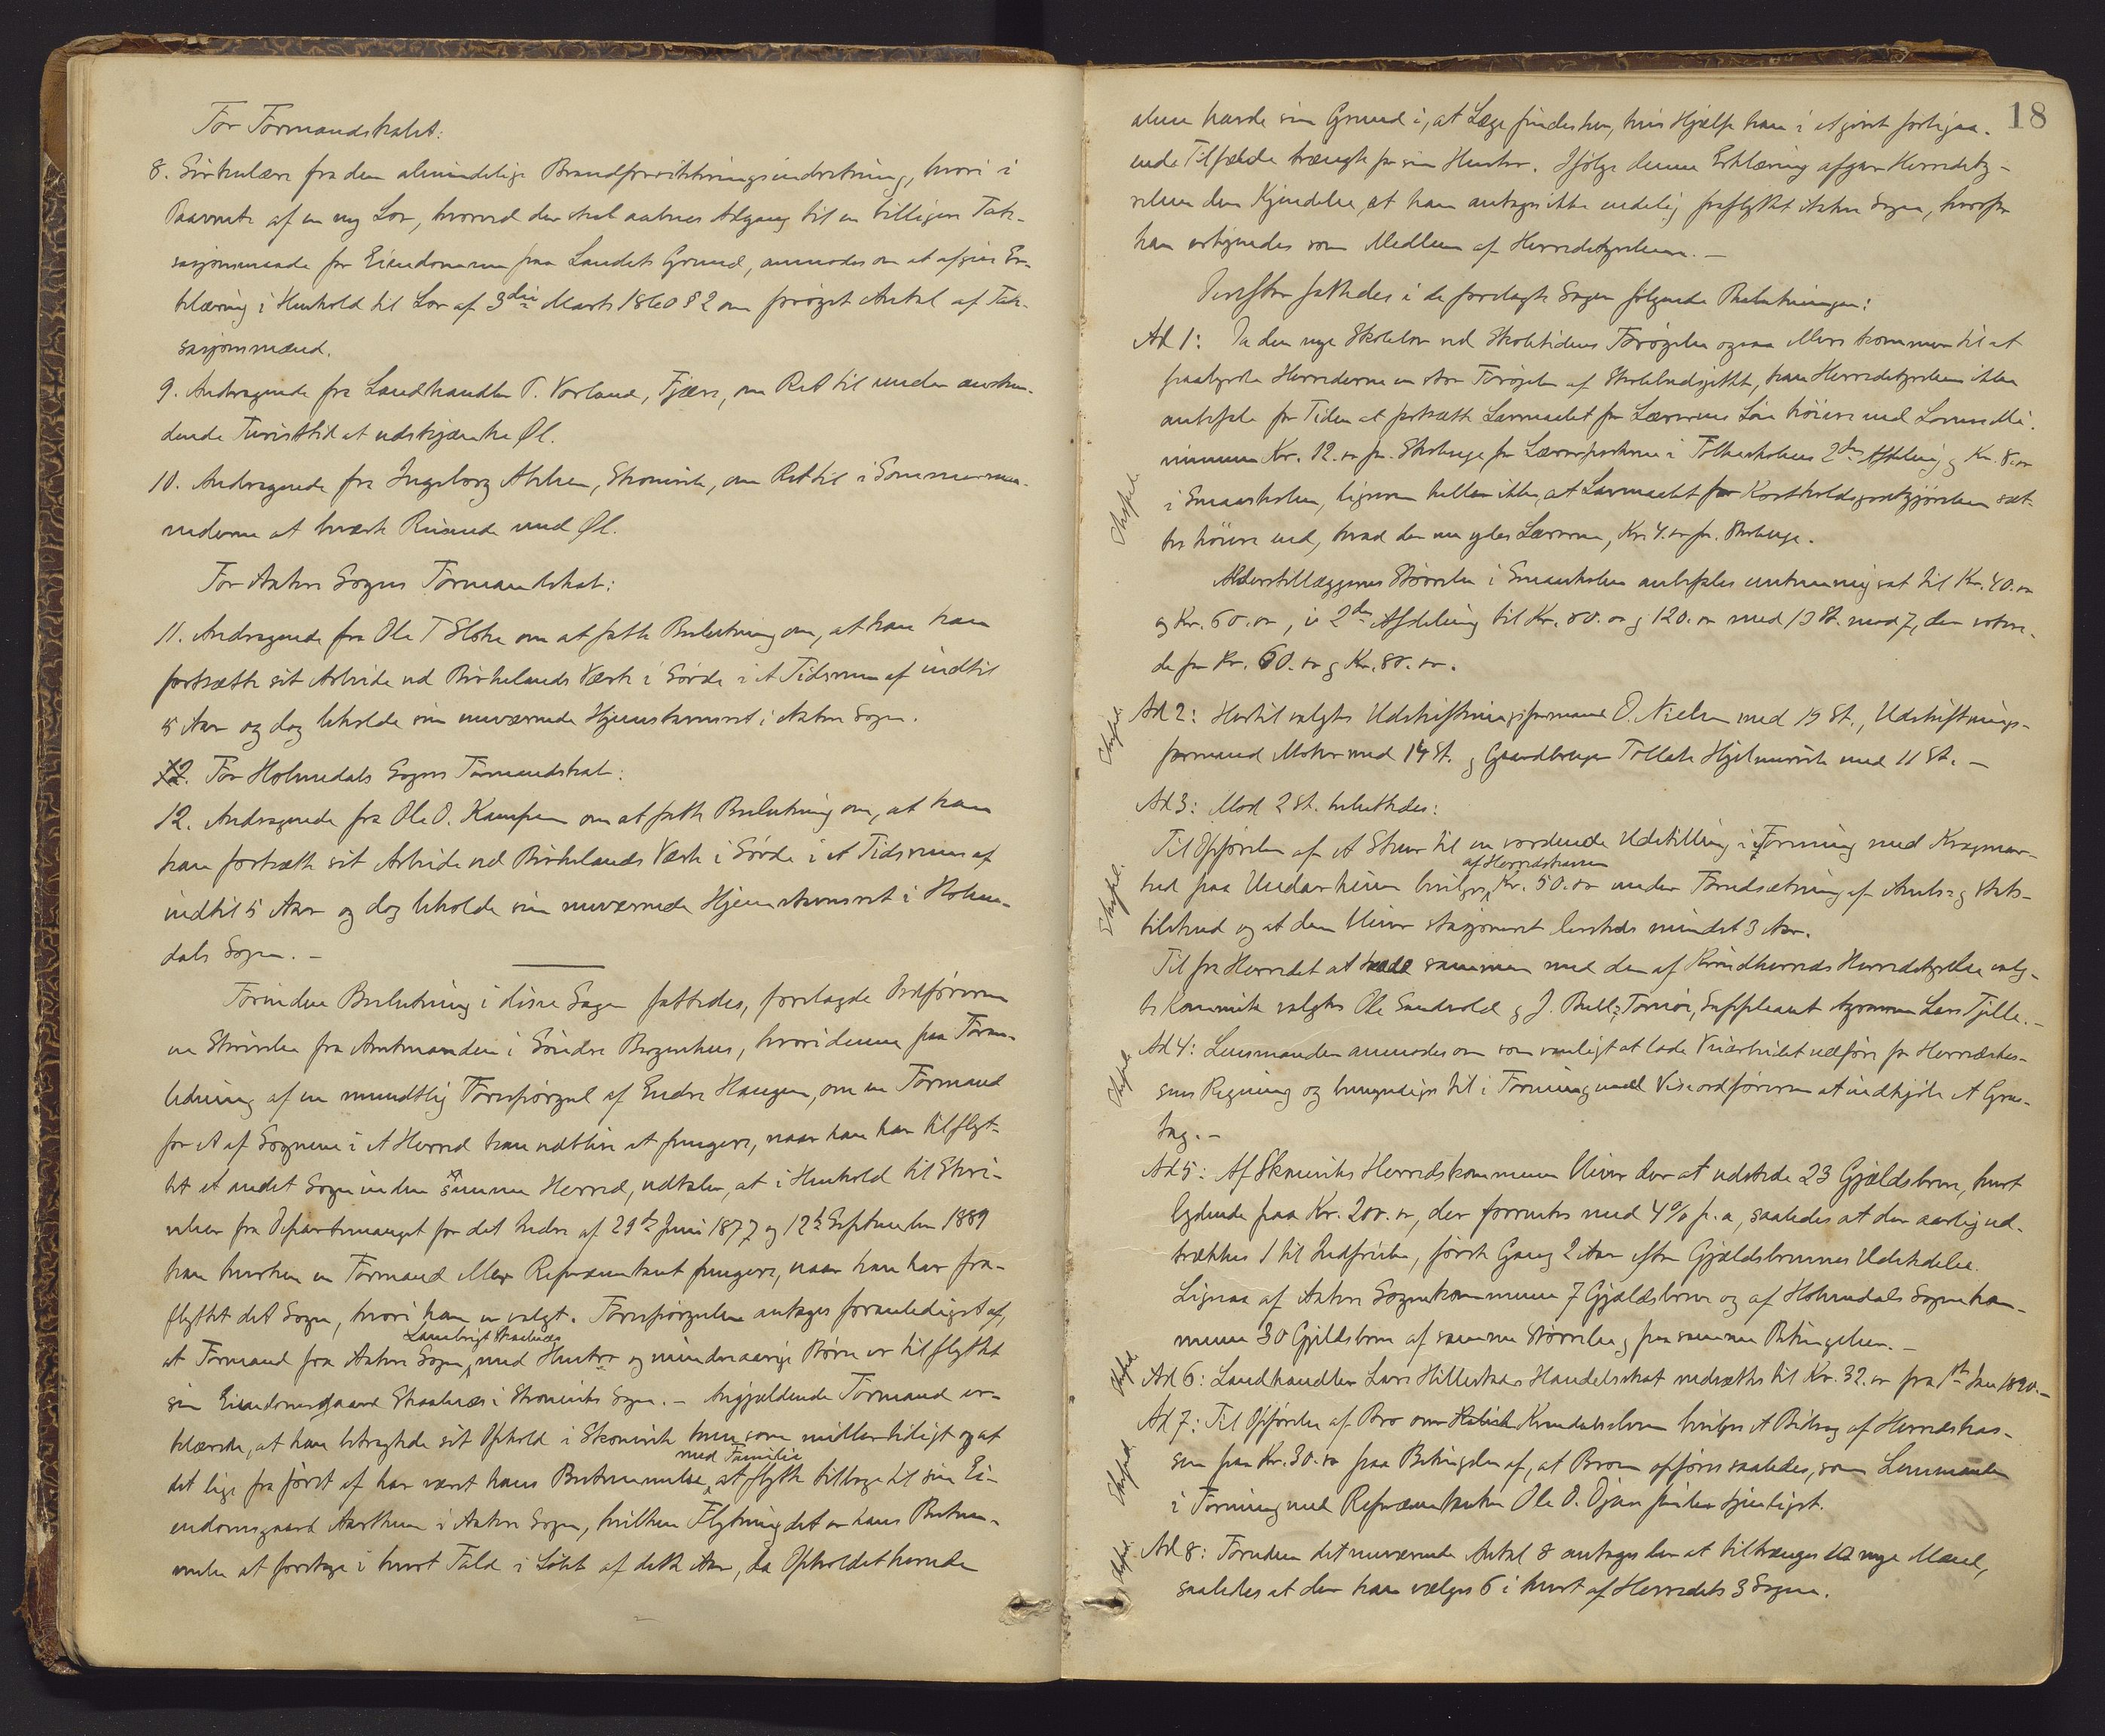 For Formandskabet:
8. Cirkulære fra den almindelige Brandforsikringsindretning, hvori i
Paavente af en ny Lov, hvorved der skal aabnes Adgang til en billigere Tak-
sasjonsmaade for Eiendommen paa Landets Grund, anmodes om at afgive Er-
klæring i Henhold til Lov af 3die Marts 1860 § 2 om forøget Antal af Tak-
sasjonsmænd.
9. Andragende fra Landhandler T. Vorland, Fjære, om Ret til under
dende Turisttid at udskjænke Øl.
10. Andragende fra Ingeborg Skonevik, om Ret til i Sommermaa-
nederne at beværte Reisende med Øl.
For Aakre Sogns Formandskab:
11. Andragende fra Ole T Eloke om at fatte Beslutning om, at han kan
fortsætte sit Arbeide ved Birkelands Værk i Sövde i et Tidsrum af indtil
5 Aar og dog beholde sin nuværende Hjemstavnsret i Aakre Sogn.
12. For Holmedals Sogns Formandskab:
12. Andragende fra Ole O. Kampen om at fatte Beslutning om, at han
kan fortsætte sit Arbeide ved Birkelands Værk i Sövde i et Tidsrum af
indtil 5 Aar og dog beholde sin nuværende Hjemstavnsret i Holme-
dals Sogn. –
Forinden Beslutning i disse Sager fattedes, foredagde Ordföreren
en Skrivelse fra Amtmanden i Söndre Bergenhus, hvori denne paa Foran-
ledning af en mundtlig Forespørgsel af Endre Haugen, om en Formand
for et af Sognene i et Herred kan vedblive at fungere, naar han har tilflyt-
tet et andet Sogn inden samme Herred, udtaler, at i Henhold til Skri-
velser fra Departemanget for det Indre af 29de Juni 1877 og 12te September 1889
kan hverken en Formand eller Repræsentant fungere, naar han har fra-
flyttet det Sogn, hvori han er valgt. Forespørgselen antages foranlediget af,
at Formand fra Aakre Sogn, Lambrigt Skaalnæs med Hustru og mindreaarige Børn er tilflyttet
sin Eiendomsgaard Skaalnæs i Skonevik Sogn. – Angjældende Formand er-
klærede, at han betragtede sit Ophold i Skonevik kun som midlertidigt og at
det lige fra først af har været hans Bestemmelse, med Familie at flytte tilbage til sin Ei-
endomsgaard i Aakre Sogn, hvilken Flytning det er hans Bestem-
melse at foretage i hvert Fald i Løbet af dette Aar, da Opholdet herude
18
alene havde sin Grund i, at Læge findes her, hvis Hjælp han i et givet foreliggen-
ende Tilfælde trængte for sin Hustru. Ifølge denne Erklæring afgav Herredsty-
relsen den Kjendelse, at han antages ikke endelig fraflyttet Aakre Sogn, hvorfor
han vedtignedes som Medlem af Herredsstyrelsen. –
Derefter fattedes i de foredagte Sager følgende Beslutninger:
Ad 1: Da den nye Skolelov ved Skoletidens Forøgelse ogsaa ellers kommer til at
paabyrde Herrederne en stor Forøgelse af Skolebudgettet, kan Herredsstyrelsen ikke
anbefale for Tiden at fortsætte Lavmaalet for Lærernes Løn høiere end Lovens Mi-
nimum Kr. 12.00 pr. Skoleuge for Lærerposterne i Folkeskolens 2den Afdeling og Kr. 8.00
i Smaaskolen, ligesom heller ikke, at Lavmaalet for Kostholdsgodtgjørelsen sæt-
tes høiere end, hvad der nu ydes Lærerne, Kr. 4.00 pr. Skoleuge.
Alderstillæggenes Størrelse i Smaaskolen anbefales enstemmig sat til Kr. 40.00
og Kr. 60.00, i 2den Afdeling til Kr. 80.00 og 120.00 med 13 St. mod 7, der votere-
de for Kr. 60.00 og Kr. 80.00.
Ad 2: Hertil valgtes Udskiftningsformand O. Nielsen med 19 St., Udskiftnings-
formand Moher med 14 St. og Gaardbruger Tollak Hjelmervik med 11 St. –
Ad 3: Mod 2 St. besluttedes:
Til Opførelse af et Skur til en vordende Udstilling i Forening med Kregmar-
ked paa Undarheim bevilges af Herredskassen Kr. 50.00 under Forudsætning af Amts- og Stats-
tilskud og at den bliver stasjonært dersteds mindst 3 Aar.
Til fra Herredet at træde sammen med den af Kvindherreds Herredsstyrelse valg-
te Komite valgtes Ole Sandvold og J. Bull; Suppleant Agronom Lars Tjelle. –
Ad 4: Lensmanden anmodes om som vanligt at lade Veiarbeidet udføre for Herredskas-
sens Regning og bemyndiges til i Forening med Viseordføreren at indkjøbe et
tag. –
Ad 5: Af Skoneviks Herredskommune bliver der at udstede 23 Gjældsbreve, hvert
lydende paa Kr. 200.00, der forrentes med 4% p.a, saaledes at der aarlig ud-
trækkes 1 til Indfrielse, første Gang 2 Aar efter Gjældsbrevenes Udstedelse.
Ligesaa af Aakre Sognekommune 7 Gjældsbreve og af Holmedals Sognekom-
mune 30 Gjeldsbreve af samme Størrelse og paa samme Betingelser. –
Ad 6: Landhandler Lars Hillestads Handelsskat nedsættes til Kr. 32.00 fra 1ste Jan 1890. –
Ad 7: Til Opførelse af Bro over Kvendalselven bevilges et Bidrag af Herredskas-
sen paa Kr. 30.00 paa Betingelse af, at Broen opføres saaledes, som Lensmanden
i Forening med Repræsentanten Ole O. finder tjenligst.
Ad 8: Foruden det nuværende Antal 8 antages her at tiltrænges 10 nye Mænd,
saaledes at der kan vælges 6 i hvert af Herredets 3 Sogne.